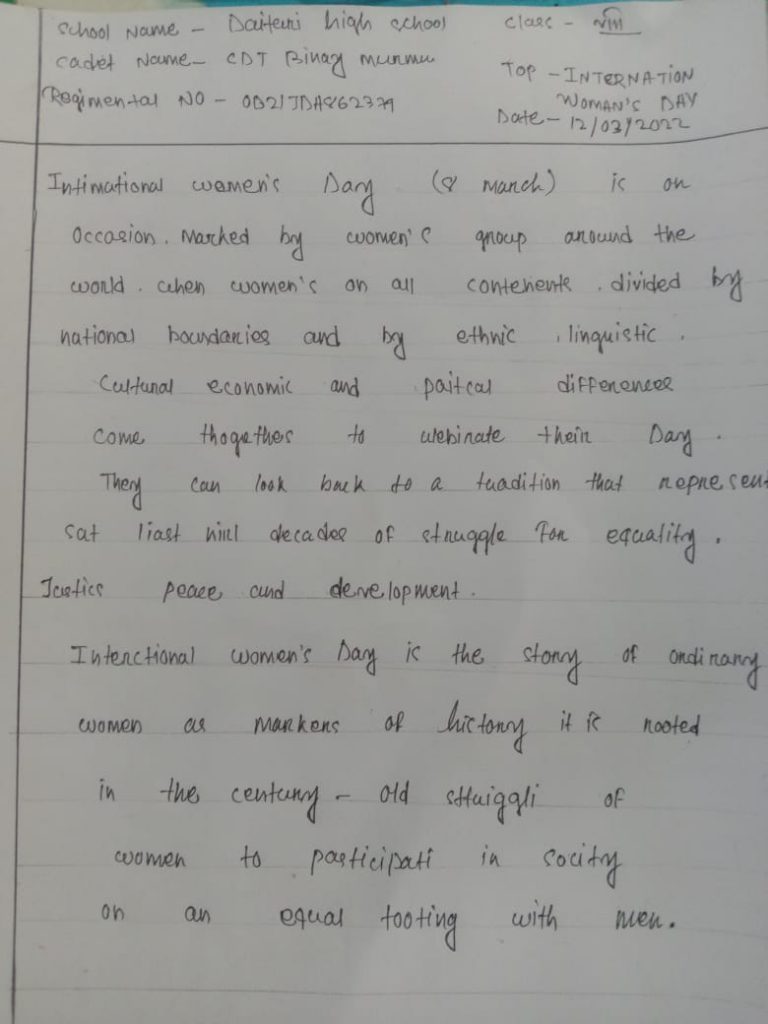 School Name - Daiteri high school
class - VIII
cadet Name - CDT Binay murmu
Top - INTERNATION
WOMAN'S DAY
Regimental NO - OD21JDA862379
Date - 12/03/2022
Intinational women's Day (8 march) is on
Occasion. Marked by women's group around the
world. when women's on all contenents. divided by
national boundaries and by ethnic, linguistic.
Cultural economic and paitcal differences
come thogether to their Day.
They can look back to a tradition that represent
sat liast decades of struggle for equality.
Justics peace and development.
Interctional women's Day is the story of ordinary
women as markers of history it is rooted
in the century - old sttuiggli of
women to participati in socity
on an equal tooting with men.